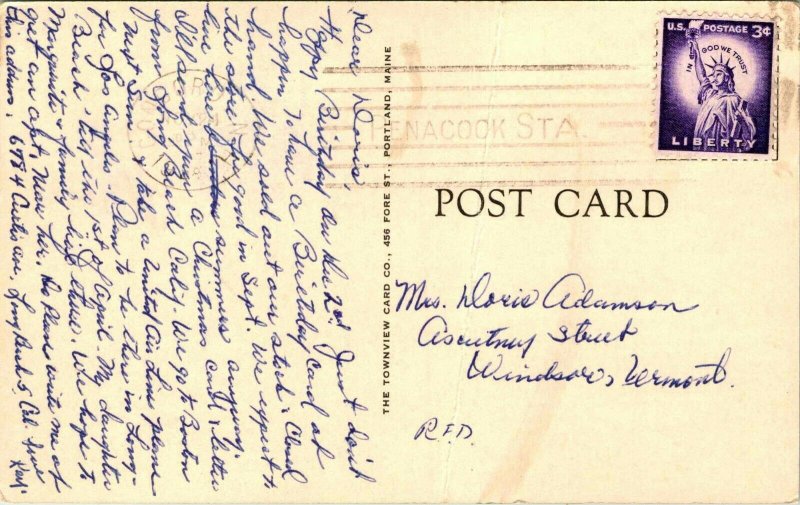 Dear Doris,
Happy Birthday on the 2nd. Just don't
happen to have a Birthday Card at
hand. We sold out our stock & closed
the store for good in Sept. We expect to
live here summers anyway.
I'll send you a Christmas card & letter
from Long Beach Calif. We go to Boston
next Sun. & take a United Air Line plane
for Los Angeles. Plan to be there in Long-
Beach till the 1st of April. My daughter
Marguerite & family live there. We hope to
get an apt. near her. So please write me at
this address. 6784 Curtis ave, Long Beach 5, Cal. Love
THE TOWNVIEW CARD CO., 456 FORE ST., PORTLAND, MAINE
PENACOOK STA.
U.S. POSTAGE 3¢
IN GOD WE TRUST
LIBERTY
POST CARD
Mrs. Doris Adamson
Ascutney Street
Windsor, Vermont.
R.F.D.